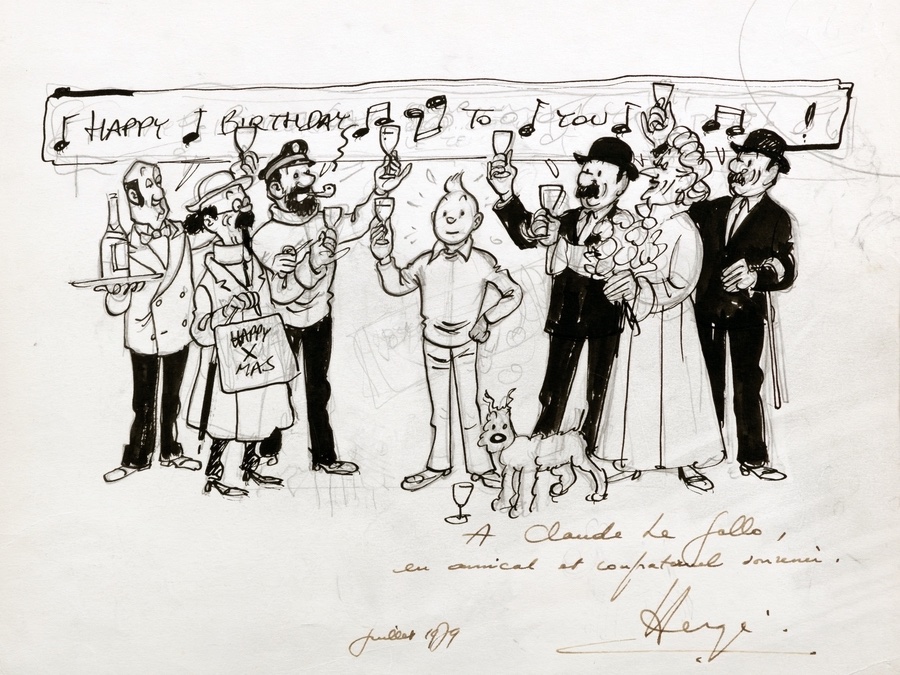 HAPPY BIRTHDAY TO YOU !
HAPPY
X
MAS
A Claude Le Gallo,
en amical et confraternel souvenir.
Hergé.
Juillet 1979